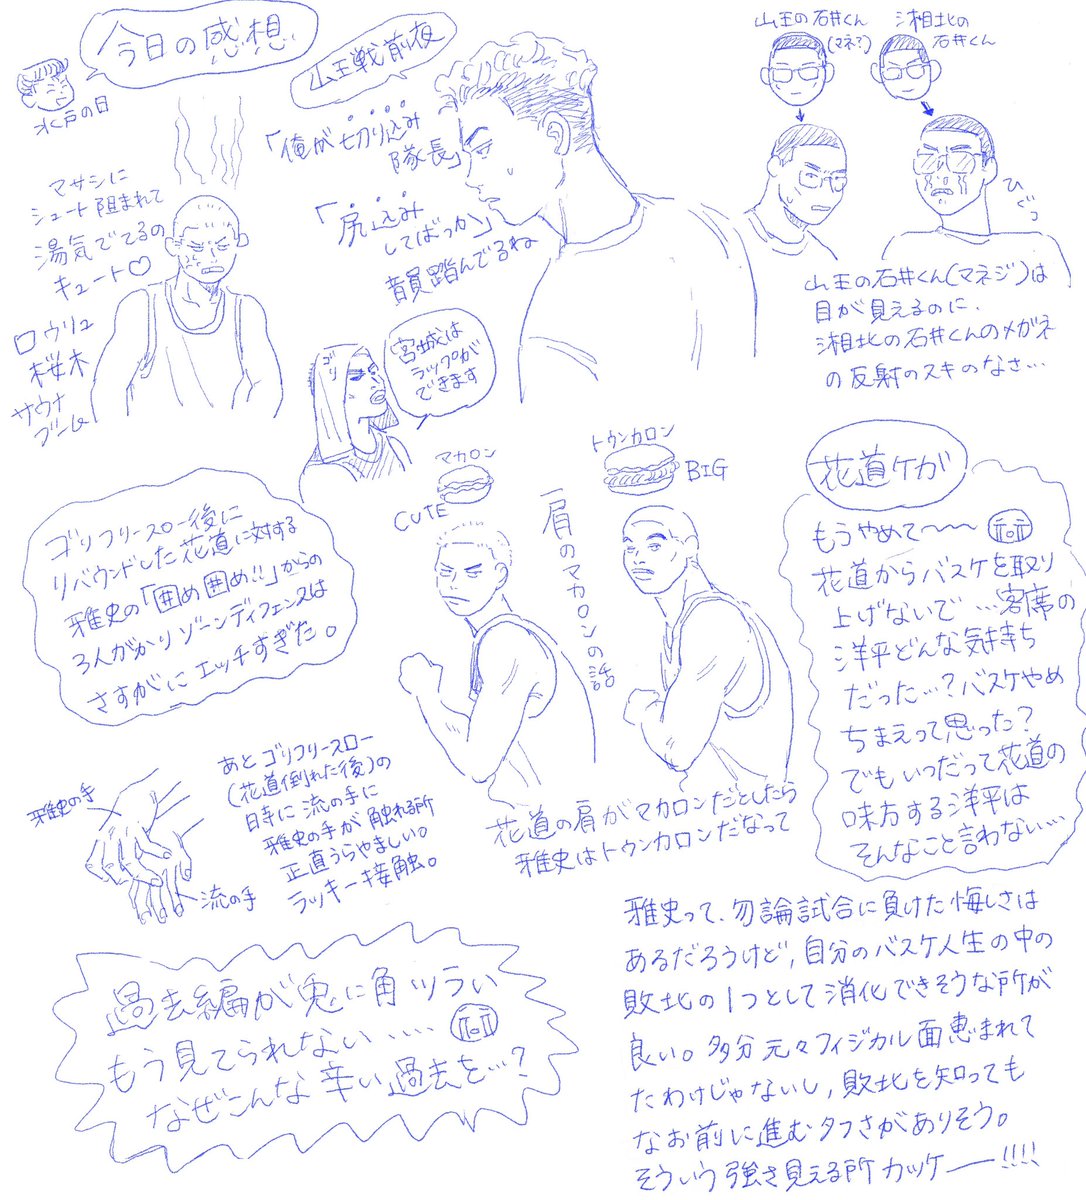 今日の感想
水戸の日
マサシに
シュート阻まれて
湯気でてるの
キュート♡
ロウリュ
桜木
サウナ
ブーム
山王戦前夜
「俺が切り込み
隊長」
「尻込み
してばっか」
韻踏んでるね
ゴリ
宮城は
ラップが
できます
山王の石井くん
(マネ?)
湘北の
石井くん
ひぐっ
山王の石井くん(マネジ)は
目が見えるのに、
湘北の石井くんのメガネ
の反射のスキのなさ…
ゴリフリースロー後に
リバウンドした花道に対する
雅史の「囲め囲め!!」からの
3人がかりゾーンディフェンスは
さすがにエッチすぎた。
マカロン
CUTE
トゥンカロン
BIG
肩のマカロンの話
花道の肩がマカロンだとしたら
雅史はトゥンカロンだなって
花道ケガ
もうやめて〜〜
花道からバスケを取り
上げないで…客席の
洋平どんな気持ち
だった…?バスケやめ
ちまえって思った?
でもいつだって花道の
味方する洋平は
そんなこと言わない…
雅史の手
流の手
あとゴリフリースロー
(花道倒れた後)の
時に流の手に
雅史の手が触れる所
正直うらやましい。
ラッキー接触。
過去編が兎に角ツラい
もう見てられない……
なぜこんな辛い過去を…?
雅史って、勿論試合に負けた悔しさは
あるだろうけど,自分のバスケ人生の中の
敗北の1つとして消化できそうな所が
良い。多分元々フィジカル面恵まれて
たわけじゃないし,敗北を知っても
なお前に進むタフさがありそう。
そういう強さ見える所カッケー!!!!